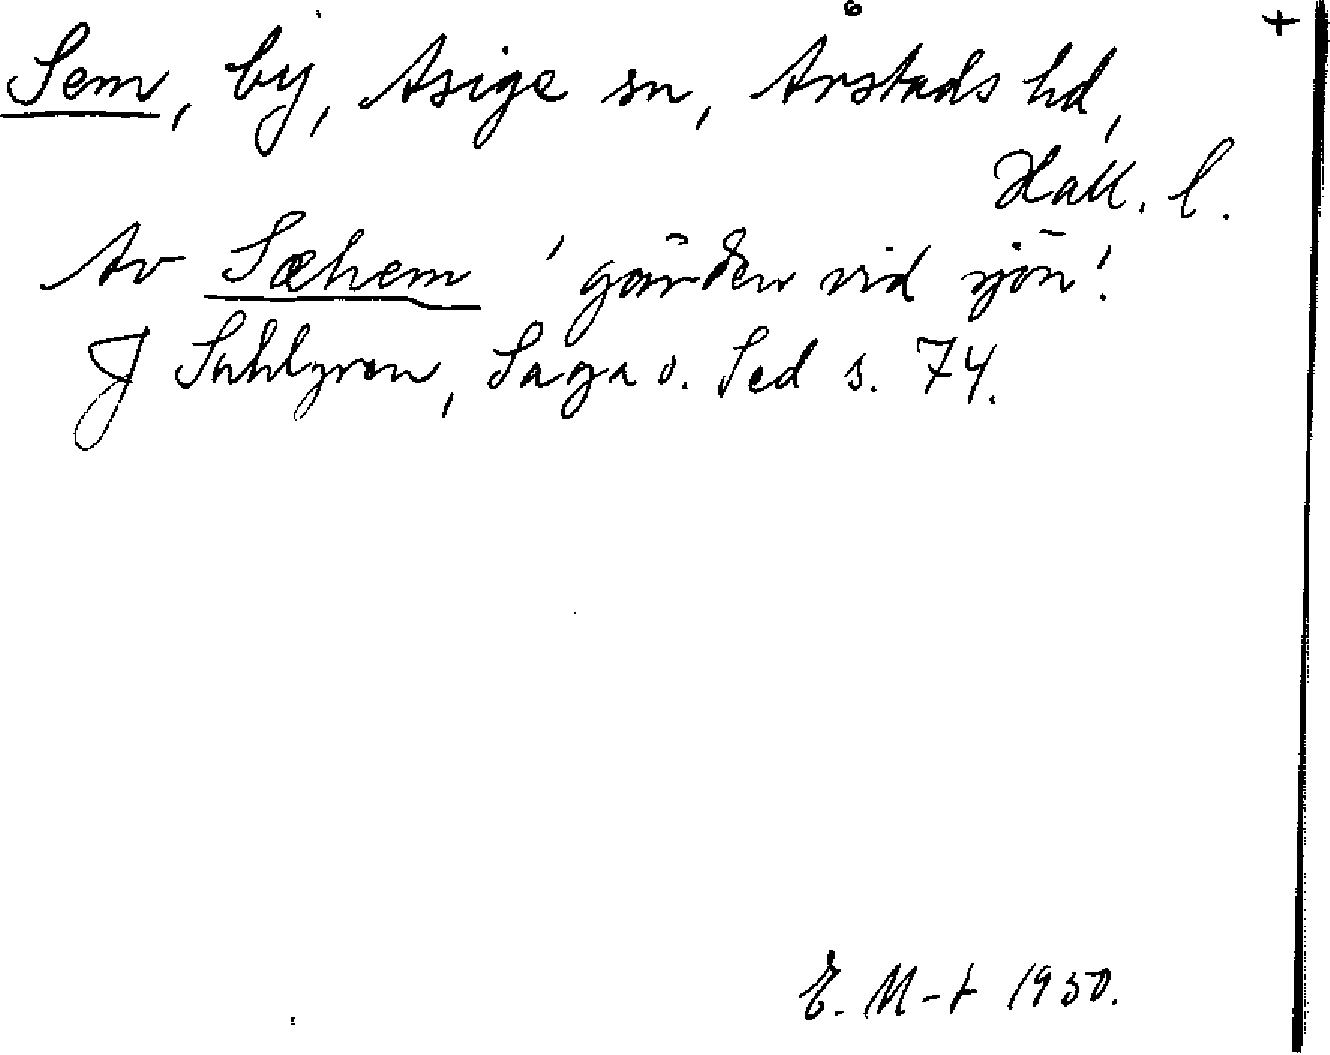 +
Sem, by, Asige sn, Årstads hd,
Hall. l.
Av Sæhem 'gården vid sjön'.
J Sahlgren, Saga o. Sed s. 74.
E. M-t 1930.